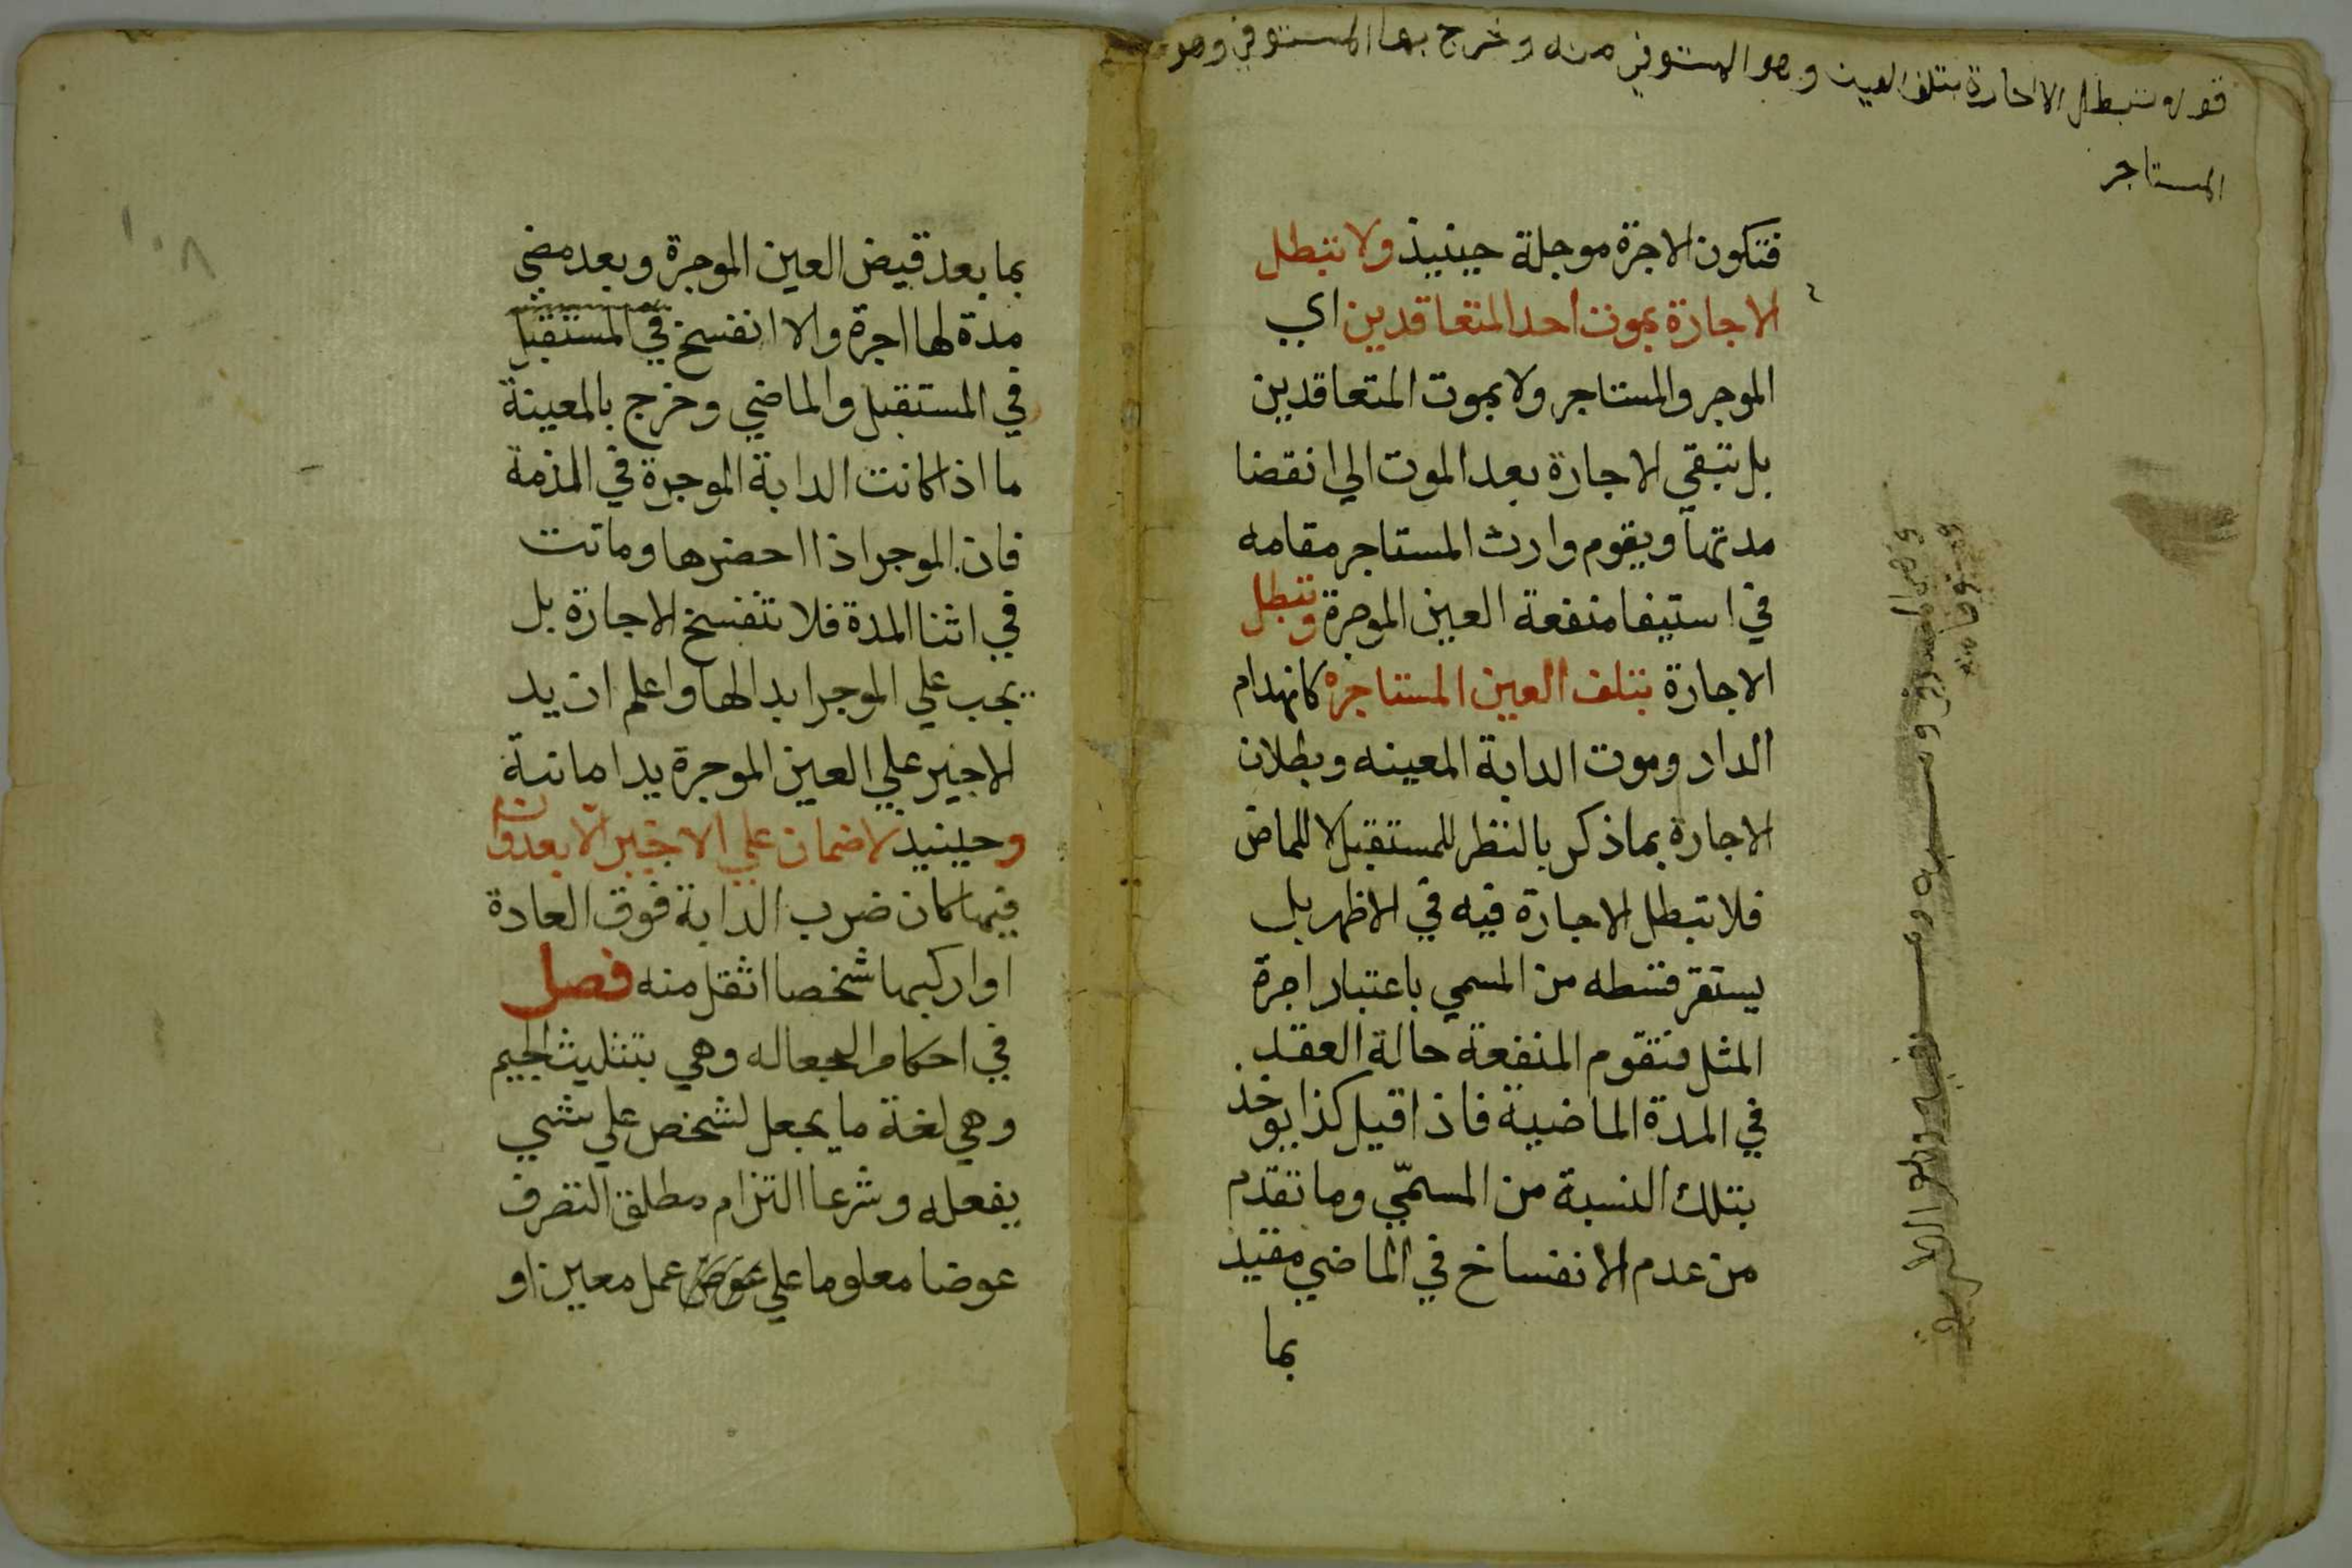 قوله تبطل الاجارة بتلف العين وهو المستوفي منه وخرج بها المستوفي وهو
المستاجر
فتكون الاجرة موجلة حينيذ ولا تبطل
الاجارة بموت احد المتعاقدين اي
الموجر والمستاجر ولا بموت المتعاقدين
بل تبقي الاجارة بعد الموت الي انقضا
مدتها ويقوم وارث المستاجر مقامه
في استيفا منفعة العين الموجرة وتبطل
الاجارة بتلف العين المستاجره كانهدام
الدار وموت الدابة المعينه وبطلان
الاجارة بما ذكر بالنظر للمستقبل لا للماض
فلا تبطل الاجارة فيه في الاظهر بل
يستقر قسطه من المسمي باعتبار اجرة
المثل فتقوم المنفعة حالة العقد
في المدة الماضية فاذا قيل كذا يوخذ
بتلك النسبة من المسمّي وما تقدم
من عدم الانفساخ في الماضي مقيد
بما
١٠٨
بما بعد قبض العين الموجرة وبعد مضي
مدة لها اجرة والا انفسخ في المستقبل
في المستقبل والماضي وخرج بالمعينة
ما اذا كانت الدابة الموجرة في الذمة
فان الموجر اذا احضرها وماتت
في اثنا المدة فلا تنفسخ الاجارة بل
يجب علي الموجر ابدالها واعلم ان يد
الاجير علي العين الموجرة يد امانة
وحينيد لا ضمان علي الاجير الا بعدوان
فيها كان ضرب الدابة فوق العادة
او اركبها شخصا اثقل منه فصل
في احكام الجعاله وهي بتثليث الجيم
وهي لغة ما يجعل لشخص علي شي
يفعله وشرعا التزام مطلق التصرف
عوضا معلوما علي عوض عمل معين او